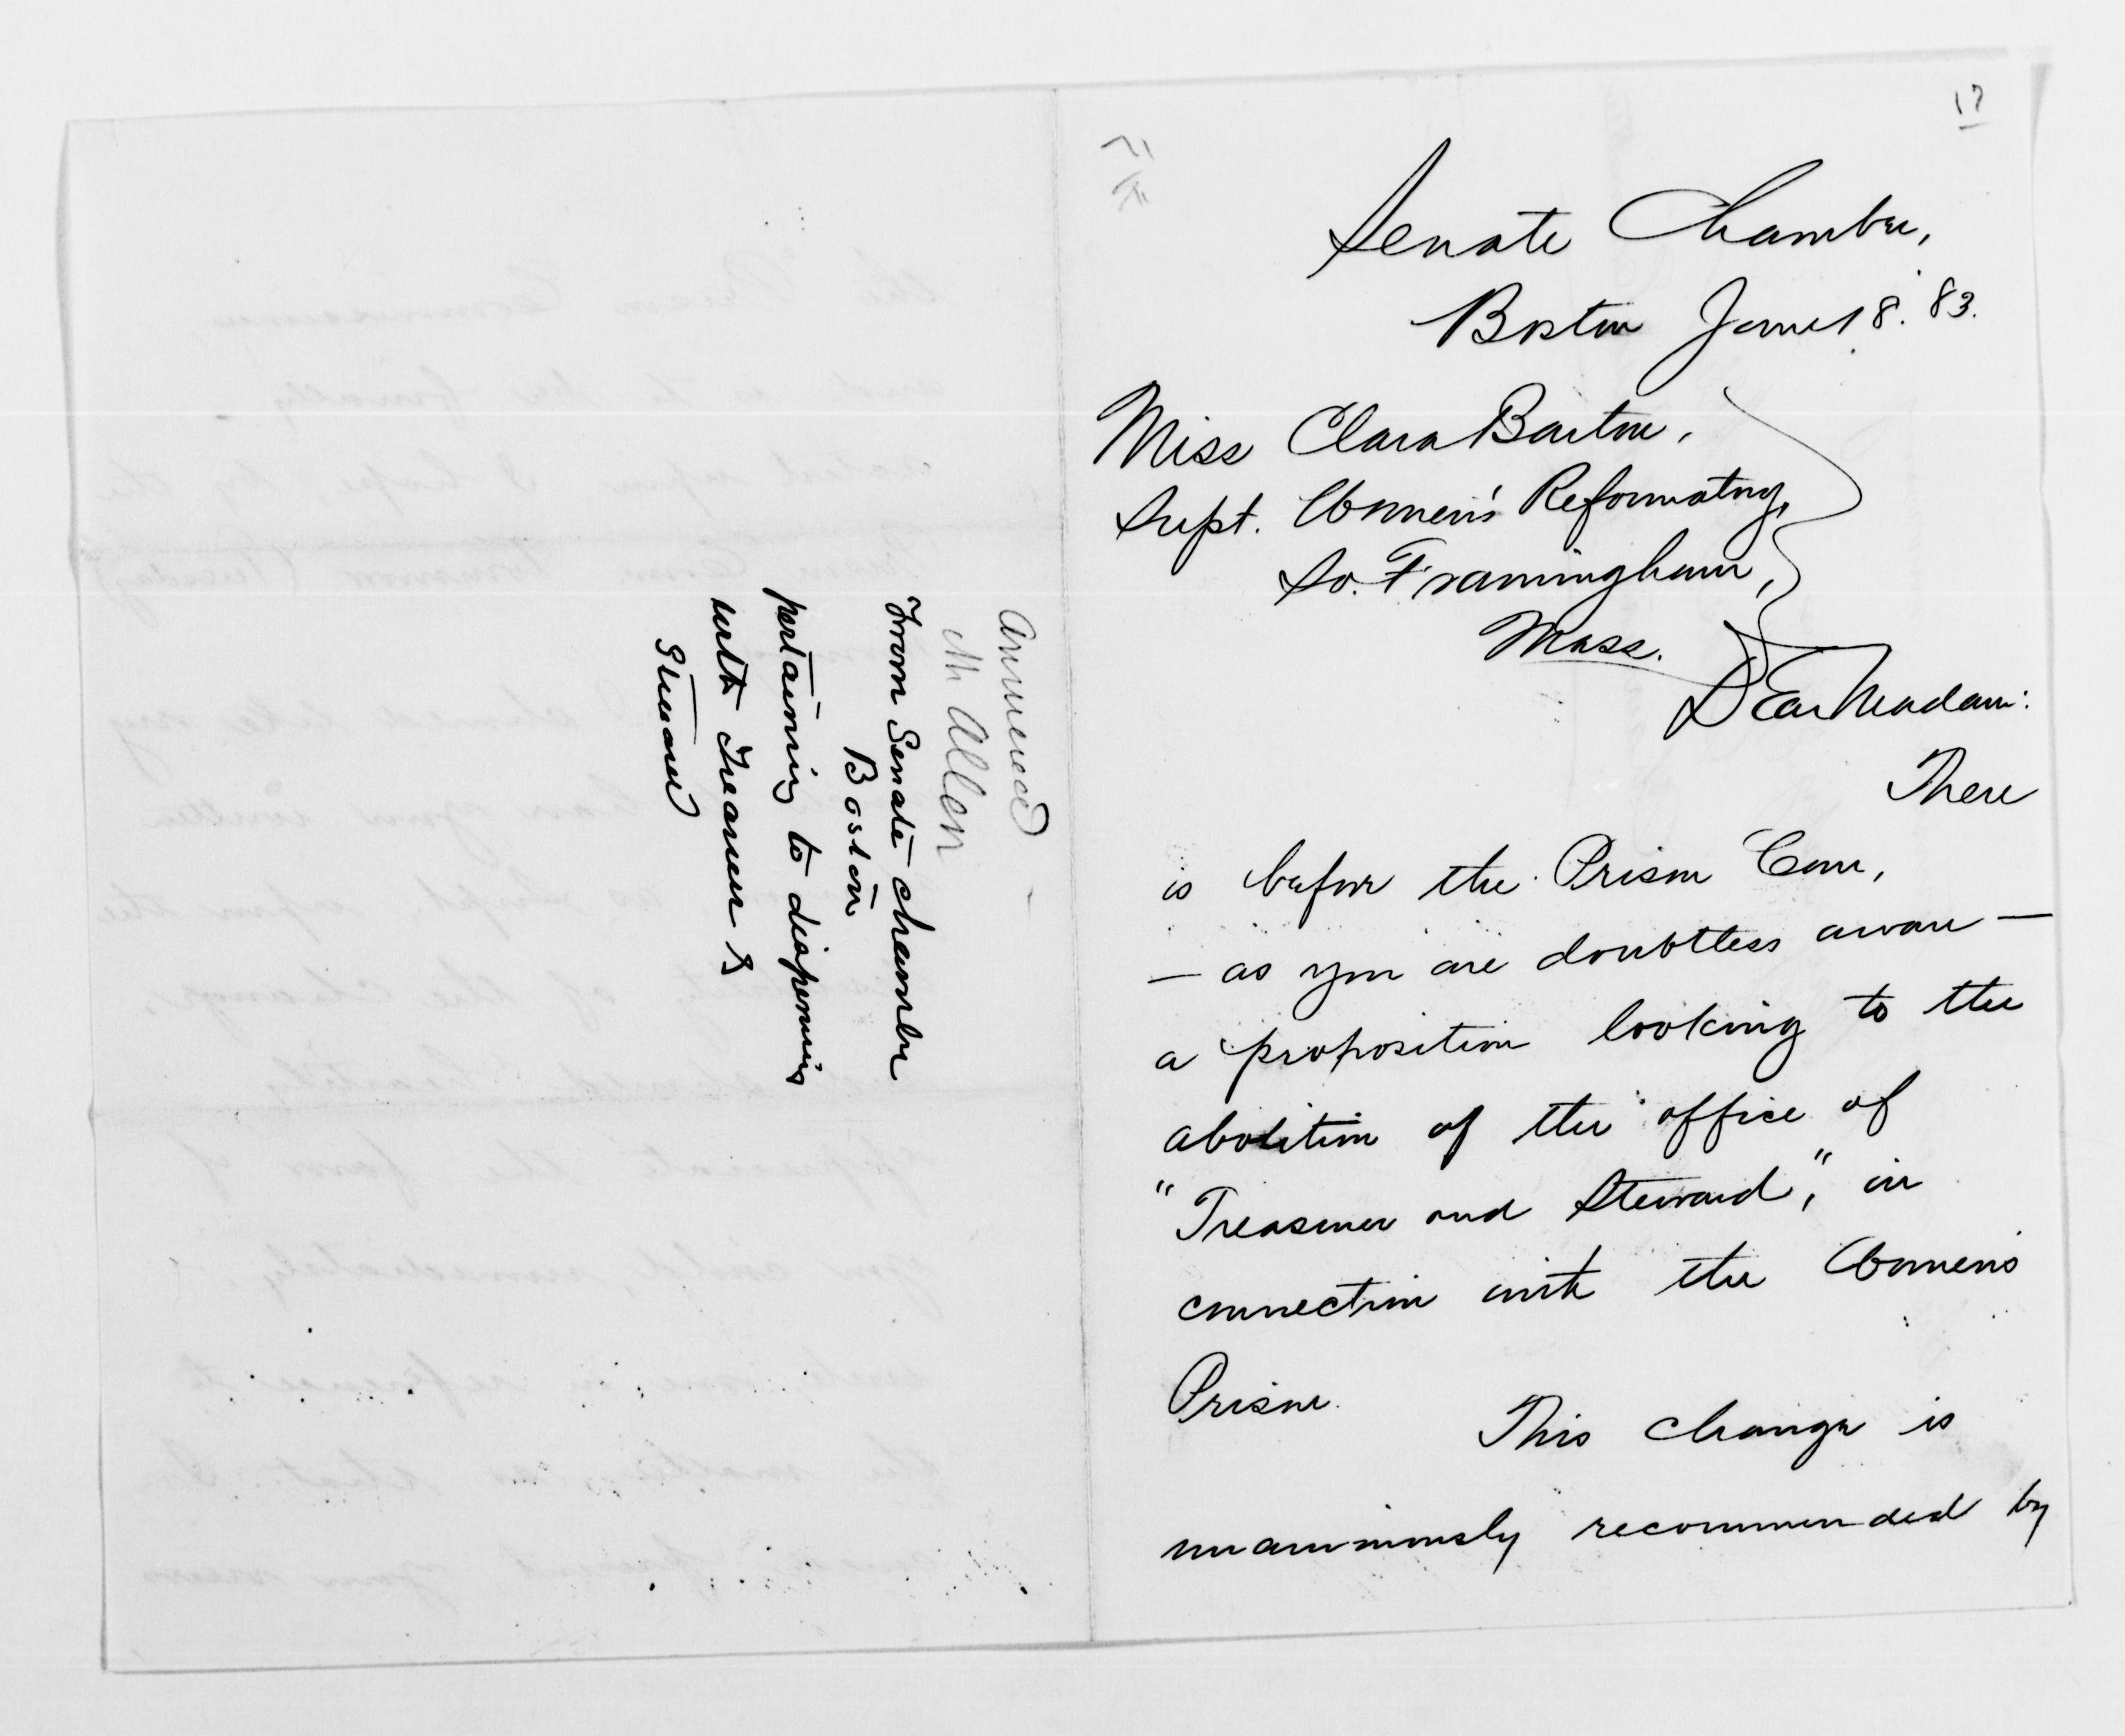 Answered
M Allen
From Senate chamber
Boston
pertaining to dispensing
with Treasurer &
Steward
17
Senate Chamber,
Boston June 18. '83.
Miss Clara Barton,
Supt. Women's Reformatory,
So. Framingham,
Mass.
Dear Madam:
There
is before the Prison Com,
— as you are doubtless aware —
a proposition looking to the
abolition of the office of
"Treasurer and Steward," in
connection with the Women's
Prison.
This change is
unanimously recommended by